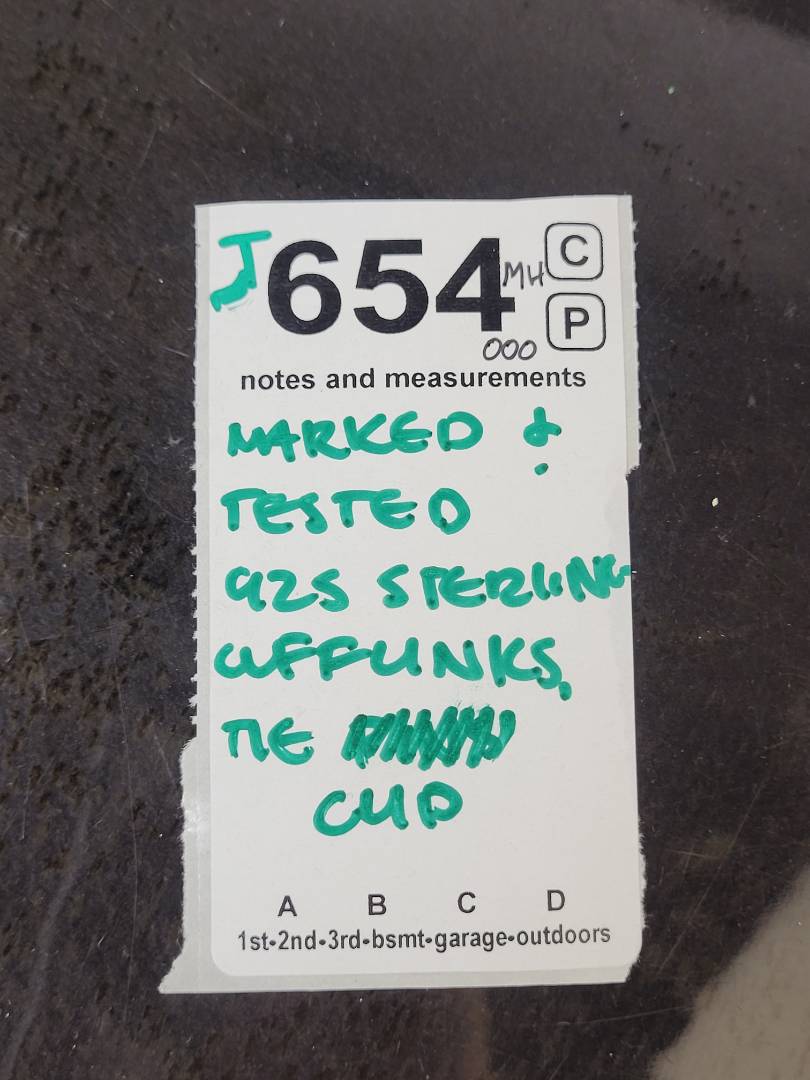 J654 MH C
P
000
notes and measurements
MARKED &
TESTED
925 STERLING
CUFFLINKS,
TIE
CLIP
A B C D
1st-2nd-3rd-bsmt-garage-outdoors